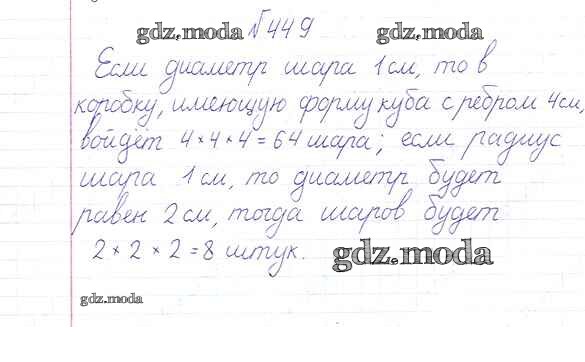 gdz.moda №449 gdz.moda
Если диаметр шара 1 см, то в
коробку, имеющую форму куба с ребром 4см,
войдёт 4×4×4=64 шара; если радиус
шара 1 см, то диаметр будет
равен 2 см, тогда шаров будет
2×2×2=8 штук. gdz.moda
gdz.moda